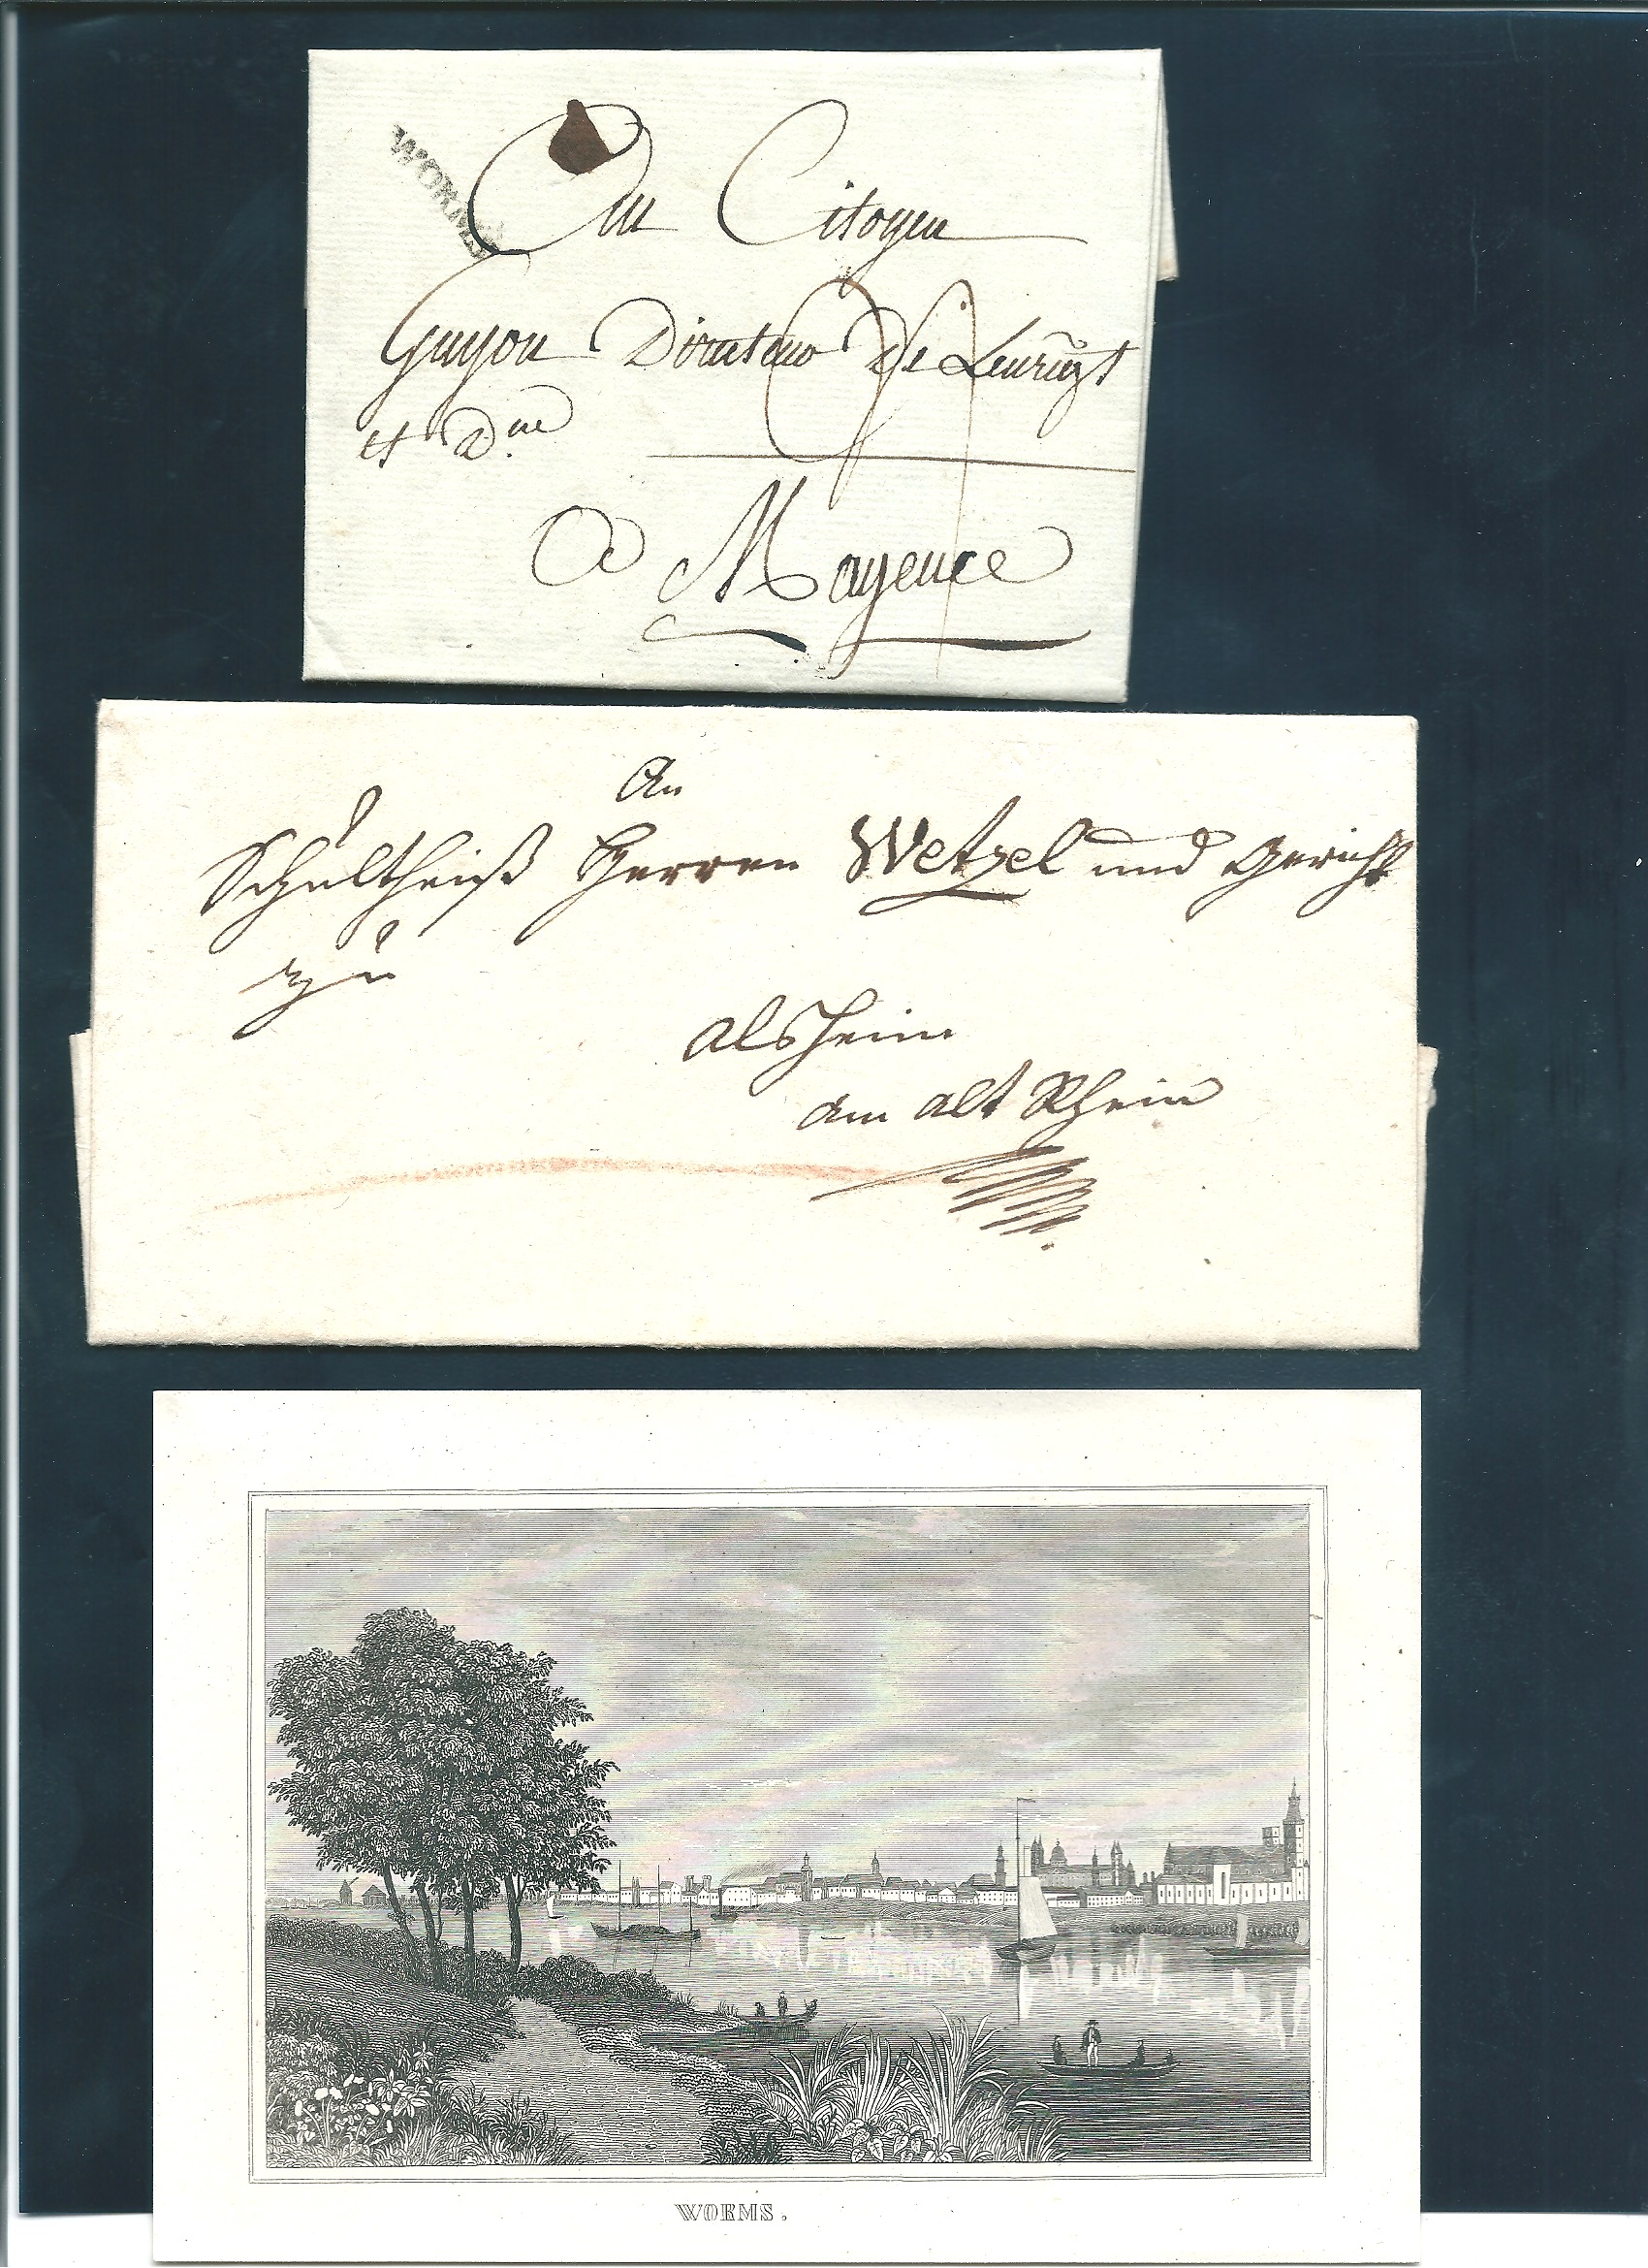 WORMS
Au Citoyen
Guyon Directeur De Lenregt
et Dne
A Mayence
An
Schultheiß Herren Wetzel und Gericht
zu
Alsheim
am alt Rhein
WORMS.